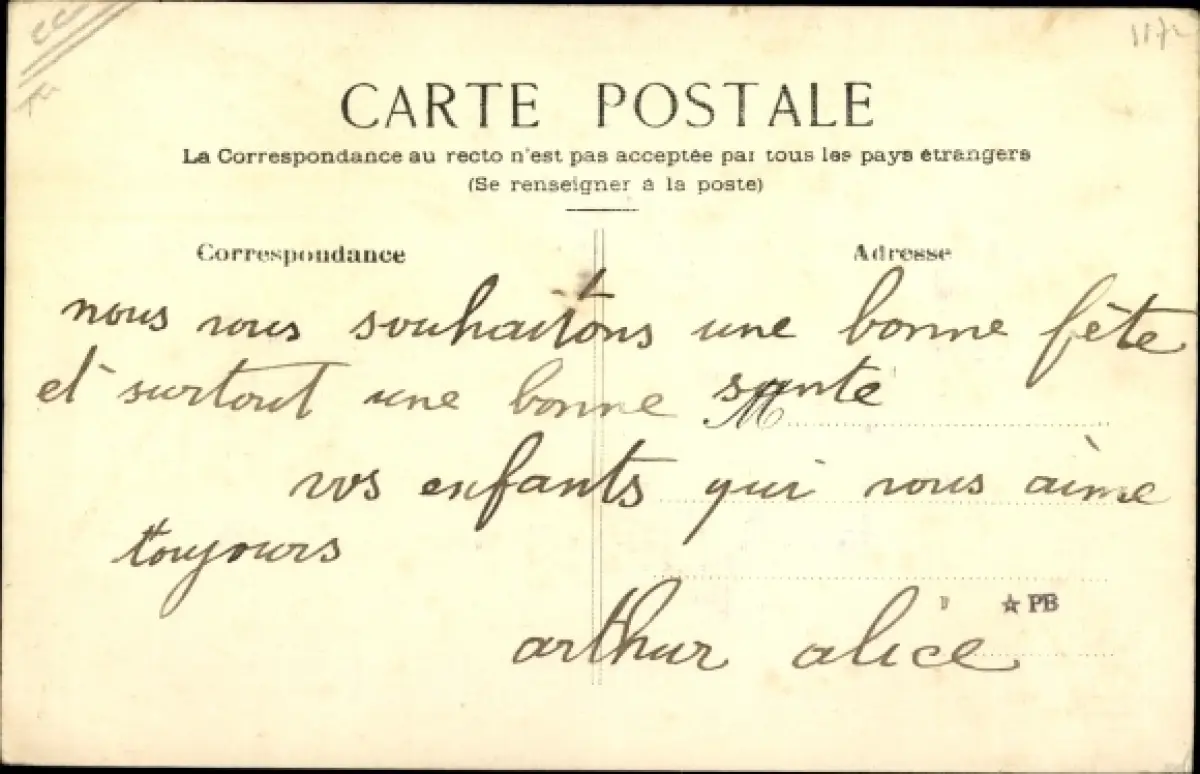 1172
CARTE POSTALE
La Correspondance au recto n'est pas acceptée par tous les pays étrangers
(Se renseigner à la poste)
Correspondance
Adresse
nous vous souhaitons une bonne fête
et surtout une bonne santé
M
vos enfants qui vous aime
toujours
☆ PB
arthur alice